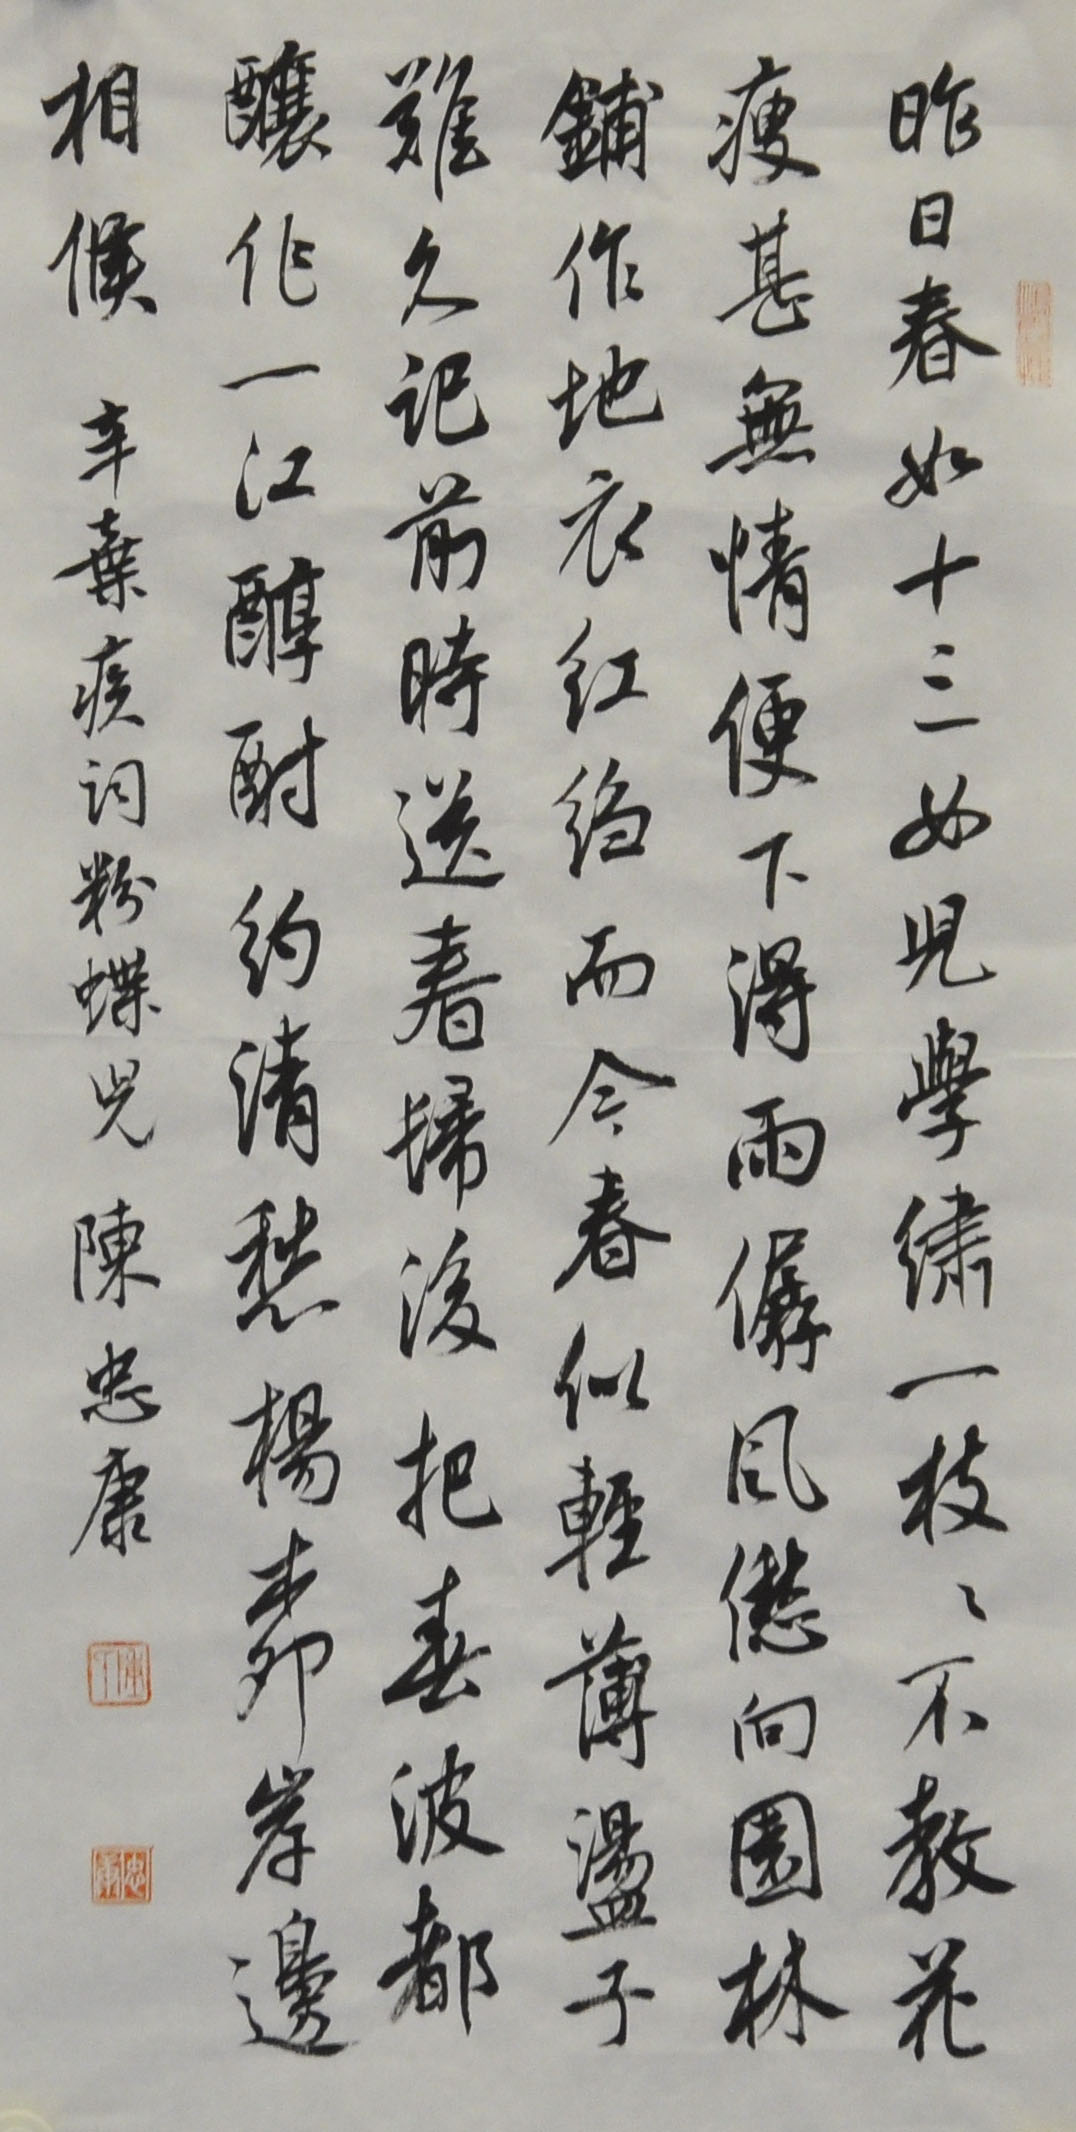 昨日春如十三女児學繡一枝〻不教花
瘦甚無情便下得雨僝風僽向園林
鋪作地衣红绉而今春似輕薄盪子
難久記前時送春歸後把春波都
釀作一江醇酎約清愁楊柳岸邊
相候 辛棄疾词粉蝶児 陳忠康
忠康